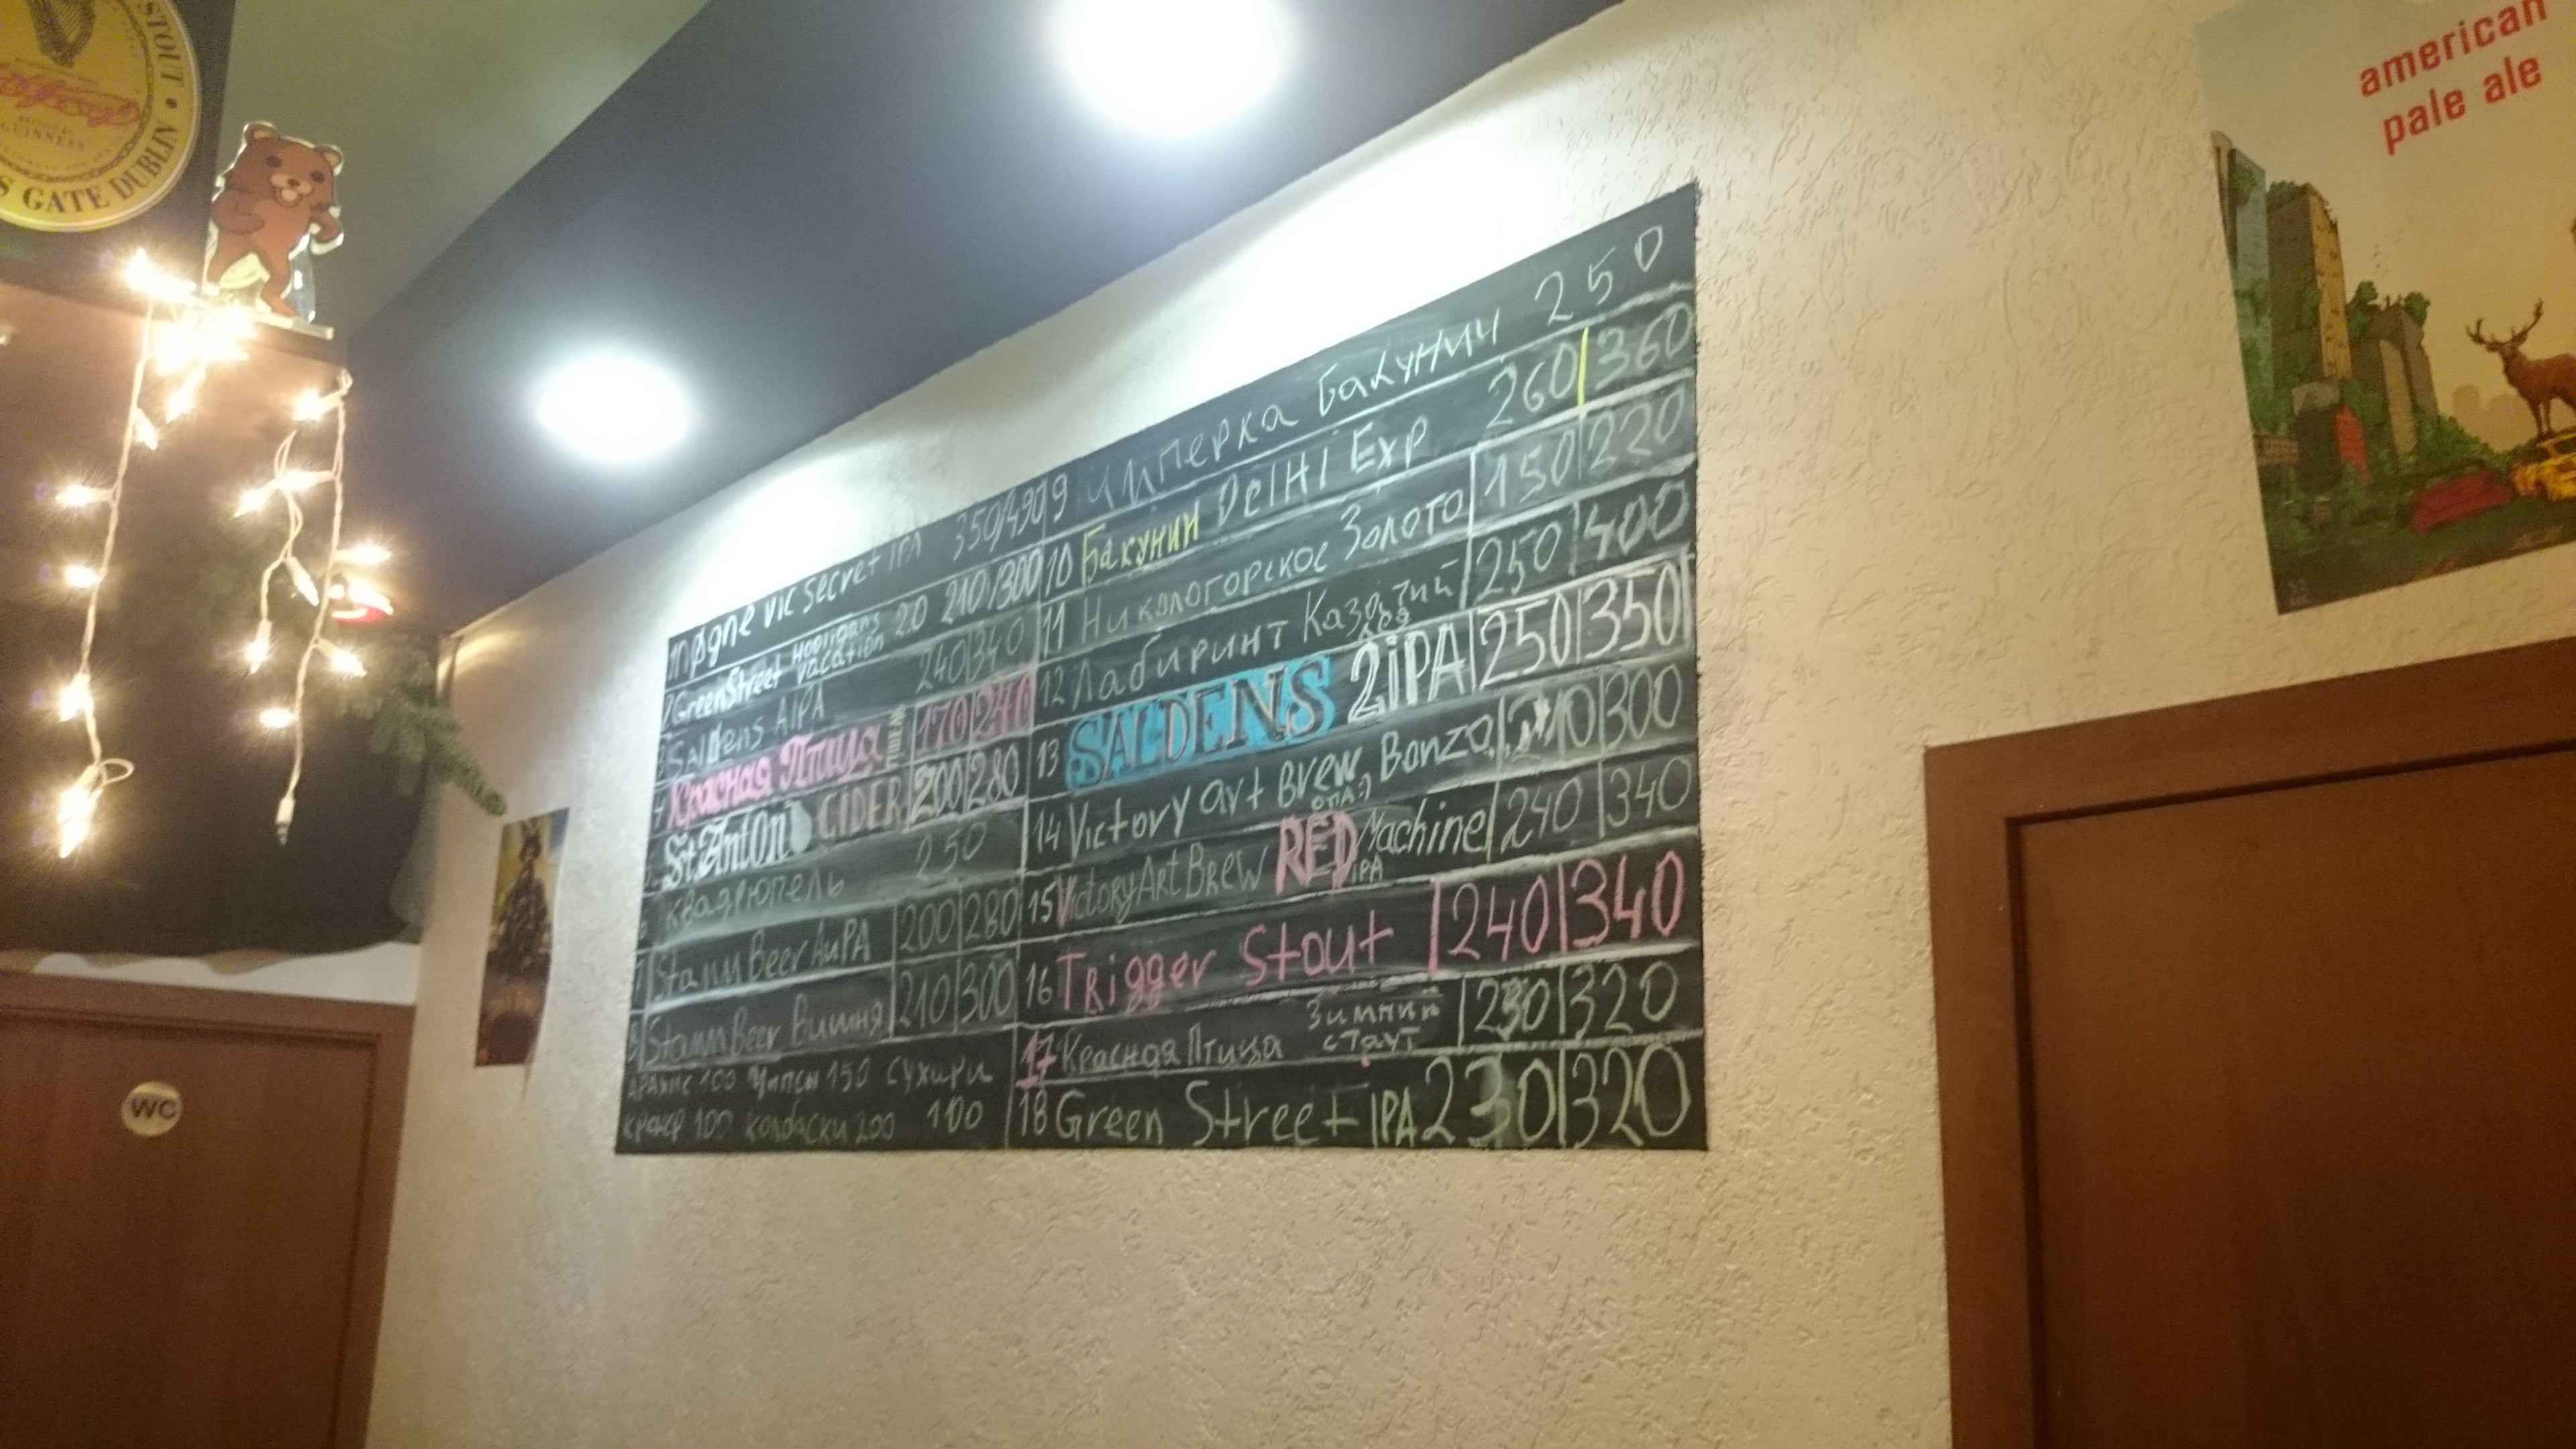 STOUT •
GUINNESS
S GATE DUBLIN
american
pale ale
WC
vic secret IPA 350/490
2 GreenStreet Hooligans Vacation 2.0 210/300
3 Saldens AIPA 240 340
4 Красная Птица 170 240
St. Anton CIDER 200 280
250
7 Stamm Beer AuPA 200 280
8 Stamm Beer Вишня 210 300
арахис 100 Чипсы 150 сухари
крекер 100 колбаски 200 100
9 Имперка Бакунин 250
10 Бакунин Delhi Exp 260 360
11 Никологорское Золото 150 220
12 Лабиринт 250 400
13 SALDENS 2iPA 250 350
14 Victory art Brew, Bonzo, 210 300
15 Victory Art Brew RED Machine IPA 240 340
16 Trigger Stout 240 340
17 Красная Птица Зимний стаут 230 320
18 Green Street IPA 230 320